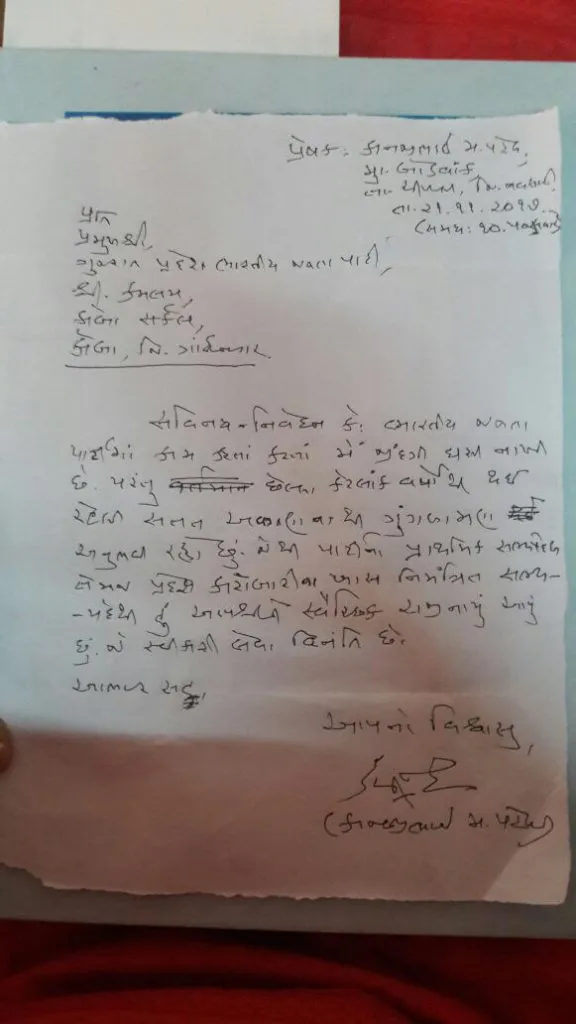 પ્રેષક: કાનજીભાઈ મ. પટેલ,
મુ. બોડવાંક,
તા. ચીખલી, જિ. નવસારી.
તા. ૨૧.૧૧.૨૦૧૭.
(સમય: ૧૦.
પ્રતિ
પ્રમુખશ્રી,
ગુજરાત પ્રદેશ ભારતીય જનતા પાર્ટી,
શ્રી. કમલમ,
કોબા સર્કલ,
કોબા, જિ. ગાંધીનગર.
સવિનય-નિવેદન કે: ભારતીય જનતા
પાર્ટીમાં કામ કરતાં કરતાં મેં જીંદગી ઘસી નાખી
છે. પરંતુ છેલ્લા કેટલાંક વર્ષોથી થઈ
રહેલી સતત અવગણનાથી ગુંગળામણ
અનુભવી રહ્યો છું. જેથી પાર્ટીના પ્રાથમિક સભ્યપદેથી
તેમજ પ્રદેશ કારોબારીના ખાસ નિમંત્રિત સભ્ય-
-પદેથી હું આપશ્રીને સ્વૈચ્છિક રાજીનામું આપું
છું. જે સ્વીકારી લેવા વિનંતિ છે.
આભાર સહ,
આપનો વિશ્વાસુ,
(કાનજીભાઈ મ. પટેલ)